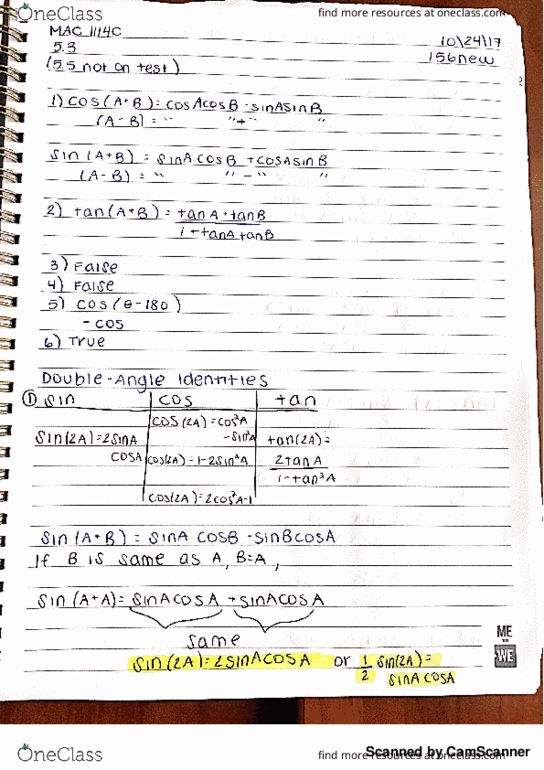 OneClass
find more resources at oneclass.com
MAC 1114C
10\24\17
5.3
156new
(5.5 not on test)
1) cos(A+B) = cosAcosB - sinAsinB
(A-B) = " "+" "
sin (A+B) = sinA cosB + cosAsinB
(A-B) = " " - " "
2) tan(A+B) = tanA + tanB
1 - tanA tanB
3) False
4) False
5) cos (θ-180)
- cos
6) True
Double-Angle Identities
① sin cos tan
cos (2A) = cos²A
- sin²A
sin(2A) = 2sinA
cosA
tan(2A) =
cos(2A) = 1-2sin²A
2tanA
1-tan²A
cos(2A) = 2cos²A-1
sin (A+B) = sinA cosB - sinBcosA
If B is same as A, B=A,
sin (A+A) = sinAcosA + sinAcosA
same
sin(2A) = 2sinAcosA or 1/2 sin(2A) =
sinA cosA
ME
WE
OneClass
find more resources at oneclass.com
Scanned by CamScanner